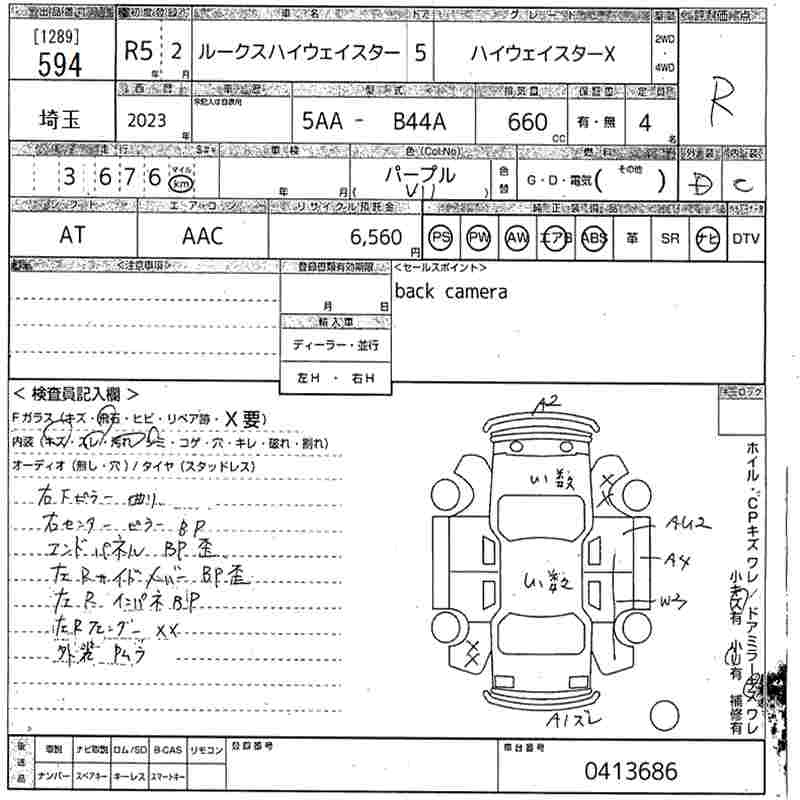 出品番号 初度登録 車名 ドア グレード 駆動 評価点
[1289] 594 R5年 2月 ルークスハイウェイスター 5 ハイウェイスターX 2WD・4WD R
西暦 車歴 型式 排気量 保証書 定員
埼玉 2023年 5AA - B44A 660cc 有・無 4名
走行 車検 色(Col:No) 燃料 外装 内装
3 6 7 6 マイル km 年 月 パープル ( VII ) 色替 G・D・電気( その他 ) D C
シフト エアコン リサイクル預託金 純正装備品
AT AAC 6,560円 PS PW AW エアB ABS 革 SR ナビ DTV
<注意事項> 登録書類有効期限 <セールスポイント>
月 日 back camera
輸入車
ディーラー・並行
左H・右H
< 検査員記入欄 >
Fガラス (キズ・飛石・ヒビ・リペア跡・X要)
内装 (キズ・スレ・汚れ・シミ・コゲ・穴・キレ・破れ・割れ)
オーディオ (無し・穴) / タイヤ (スタッドレス)
右Fピラー 曲り
右センターピラー BP
エンドパネル BP歪
左Rサイドメンバー BP歪
左R インパネBP
左Rフェンダー XX
外装
A2
XX
AU2
A4
W3
XX
A1スレ
ホイル・CPキズ ワレ / ドアミラーキズ ワレ
小キズ有 小凹有 補修有
後送品 車検 ナビ取説 ロム/SD B-CAS リモコン 登録番号 車台番号
ナンバー スペアキー キーレス スマートキー 0413686